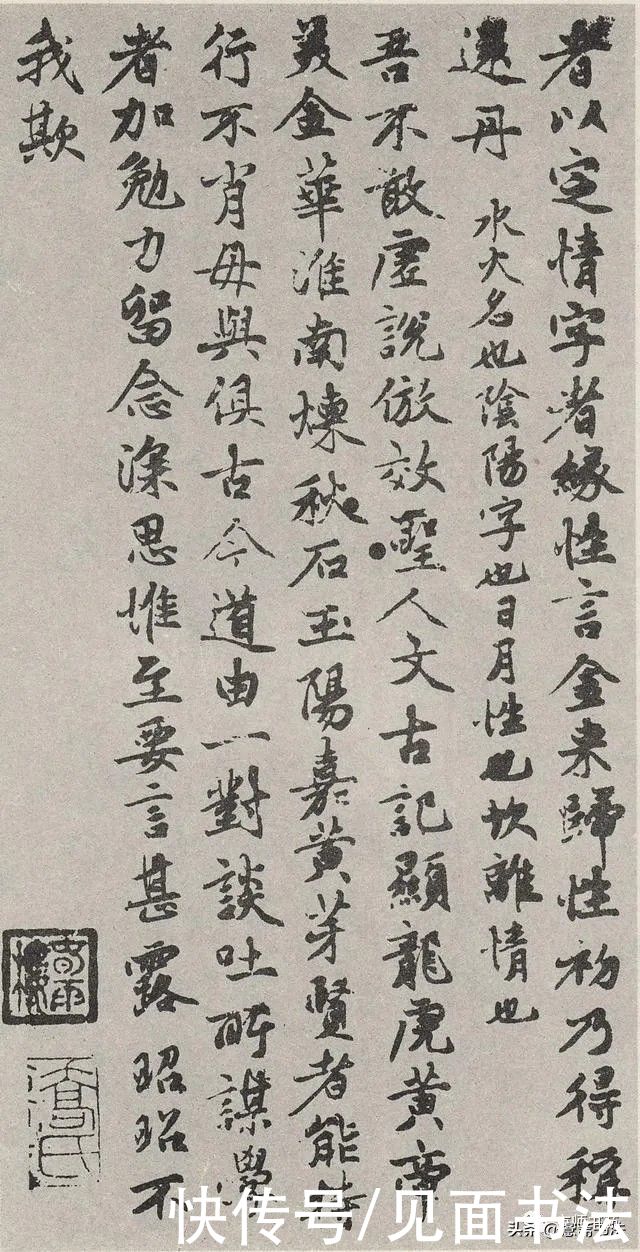 者以定情字者緣性言金来歸性初乃得稱
還丹 水火名也陰陽字也日月性也坎離情也
吾不敢虛說倣效聖人文古記顯龍虎黃帝
美金華淮南煉秋石玉陽嘉黃芽賢者能持
行不肖毋與俱古今道由一對談吐所謀學
者加勉力留念深思惟至要言甚露昭昭不
我欺
快传号/见面书法
头条